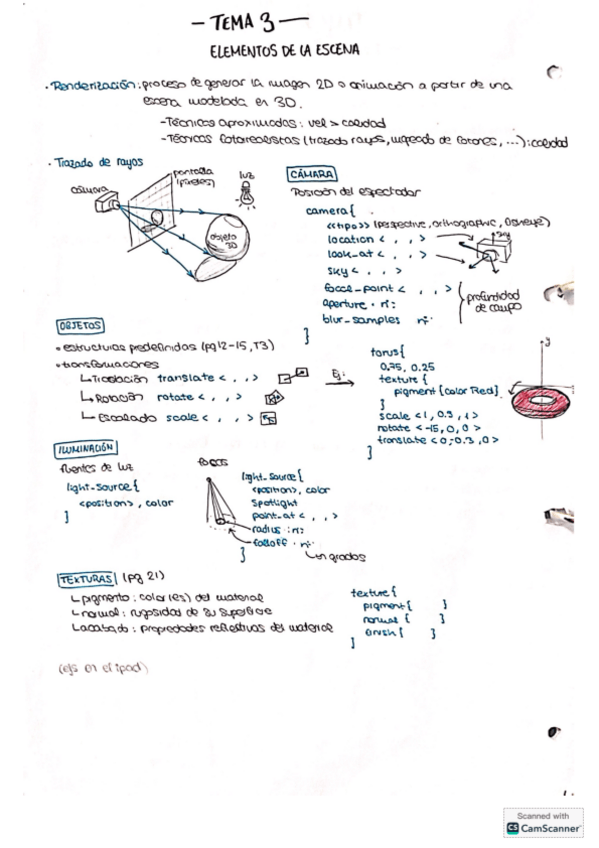 - TEMA 3 -
ELEMENTOS DE LA ESCENA
· Renderización: proceso de generar la imagen 2D o animación a partir de una
escena modelada en 3D.
- Técnicas aproximadas: vel > calidad
- Técnicas fotorrealistas (trazado rayos, mapeado de fotones, ...): calidad
· Trazado de rayos
cámara
pantalla
(píxeles)
luz
objeto
3D
CÁMARA
Posición del espectador
camera {
<<tipo>> (perspective, orthographic, fisheye)
location < , , >
look_at < , , >
sky < , , >
focal_point < , , >
aperture · nº:
blur_samples nº
}
sky
profundidad
de campo
OBJETOS
• estructuras predefinidas (pg 12-15, T3)
• transformaciones
↳ Traslación translate < , , >
↳ Rotación rotate < , , >
↳ Escalado scale < , , >
Ej:
torus {
0.75, 0.25
texture {
pigment {color Red}
}
scale <1, 0.5, 1>
rotate <-15, 0, 0>
translate <0, 0.3, 0>
}
y
ILUMINACIÓN
fuentes de luz
light_source {
<position>, color
}
focos
light_source {
<position>, color
spotlight
point_at < , , >
radius : nº:
falloff · nº:
}
↳ en grados
TEXTURAS (pg 21)
↳ pigmento: color(es) del material
↳ normal: rugosidad de su superficie
↳ acabado: propiedades reflectivas del material
texture {
pigment { }
normal { }
finish { }
}
(ejs en el ipad)
Scanned with
CS CamScanner